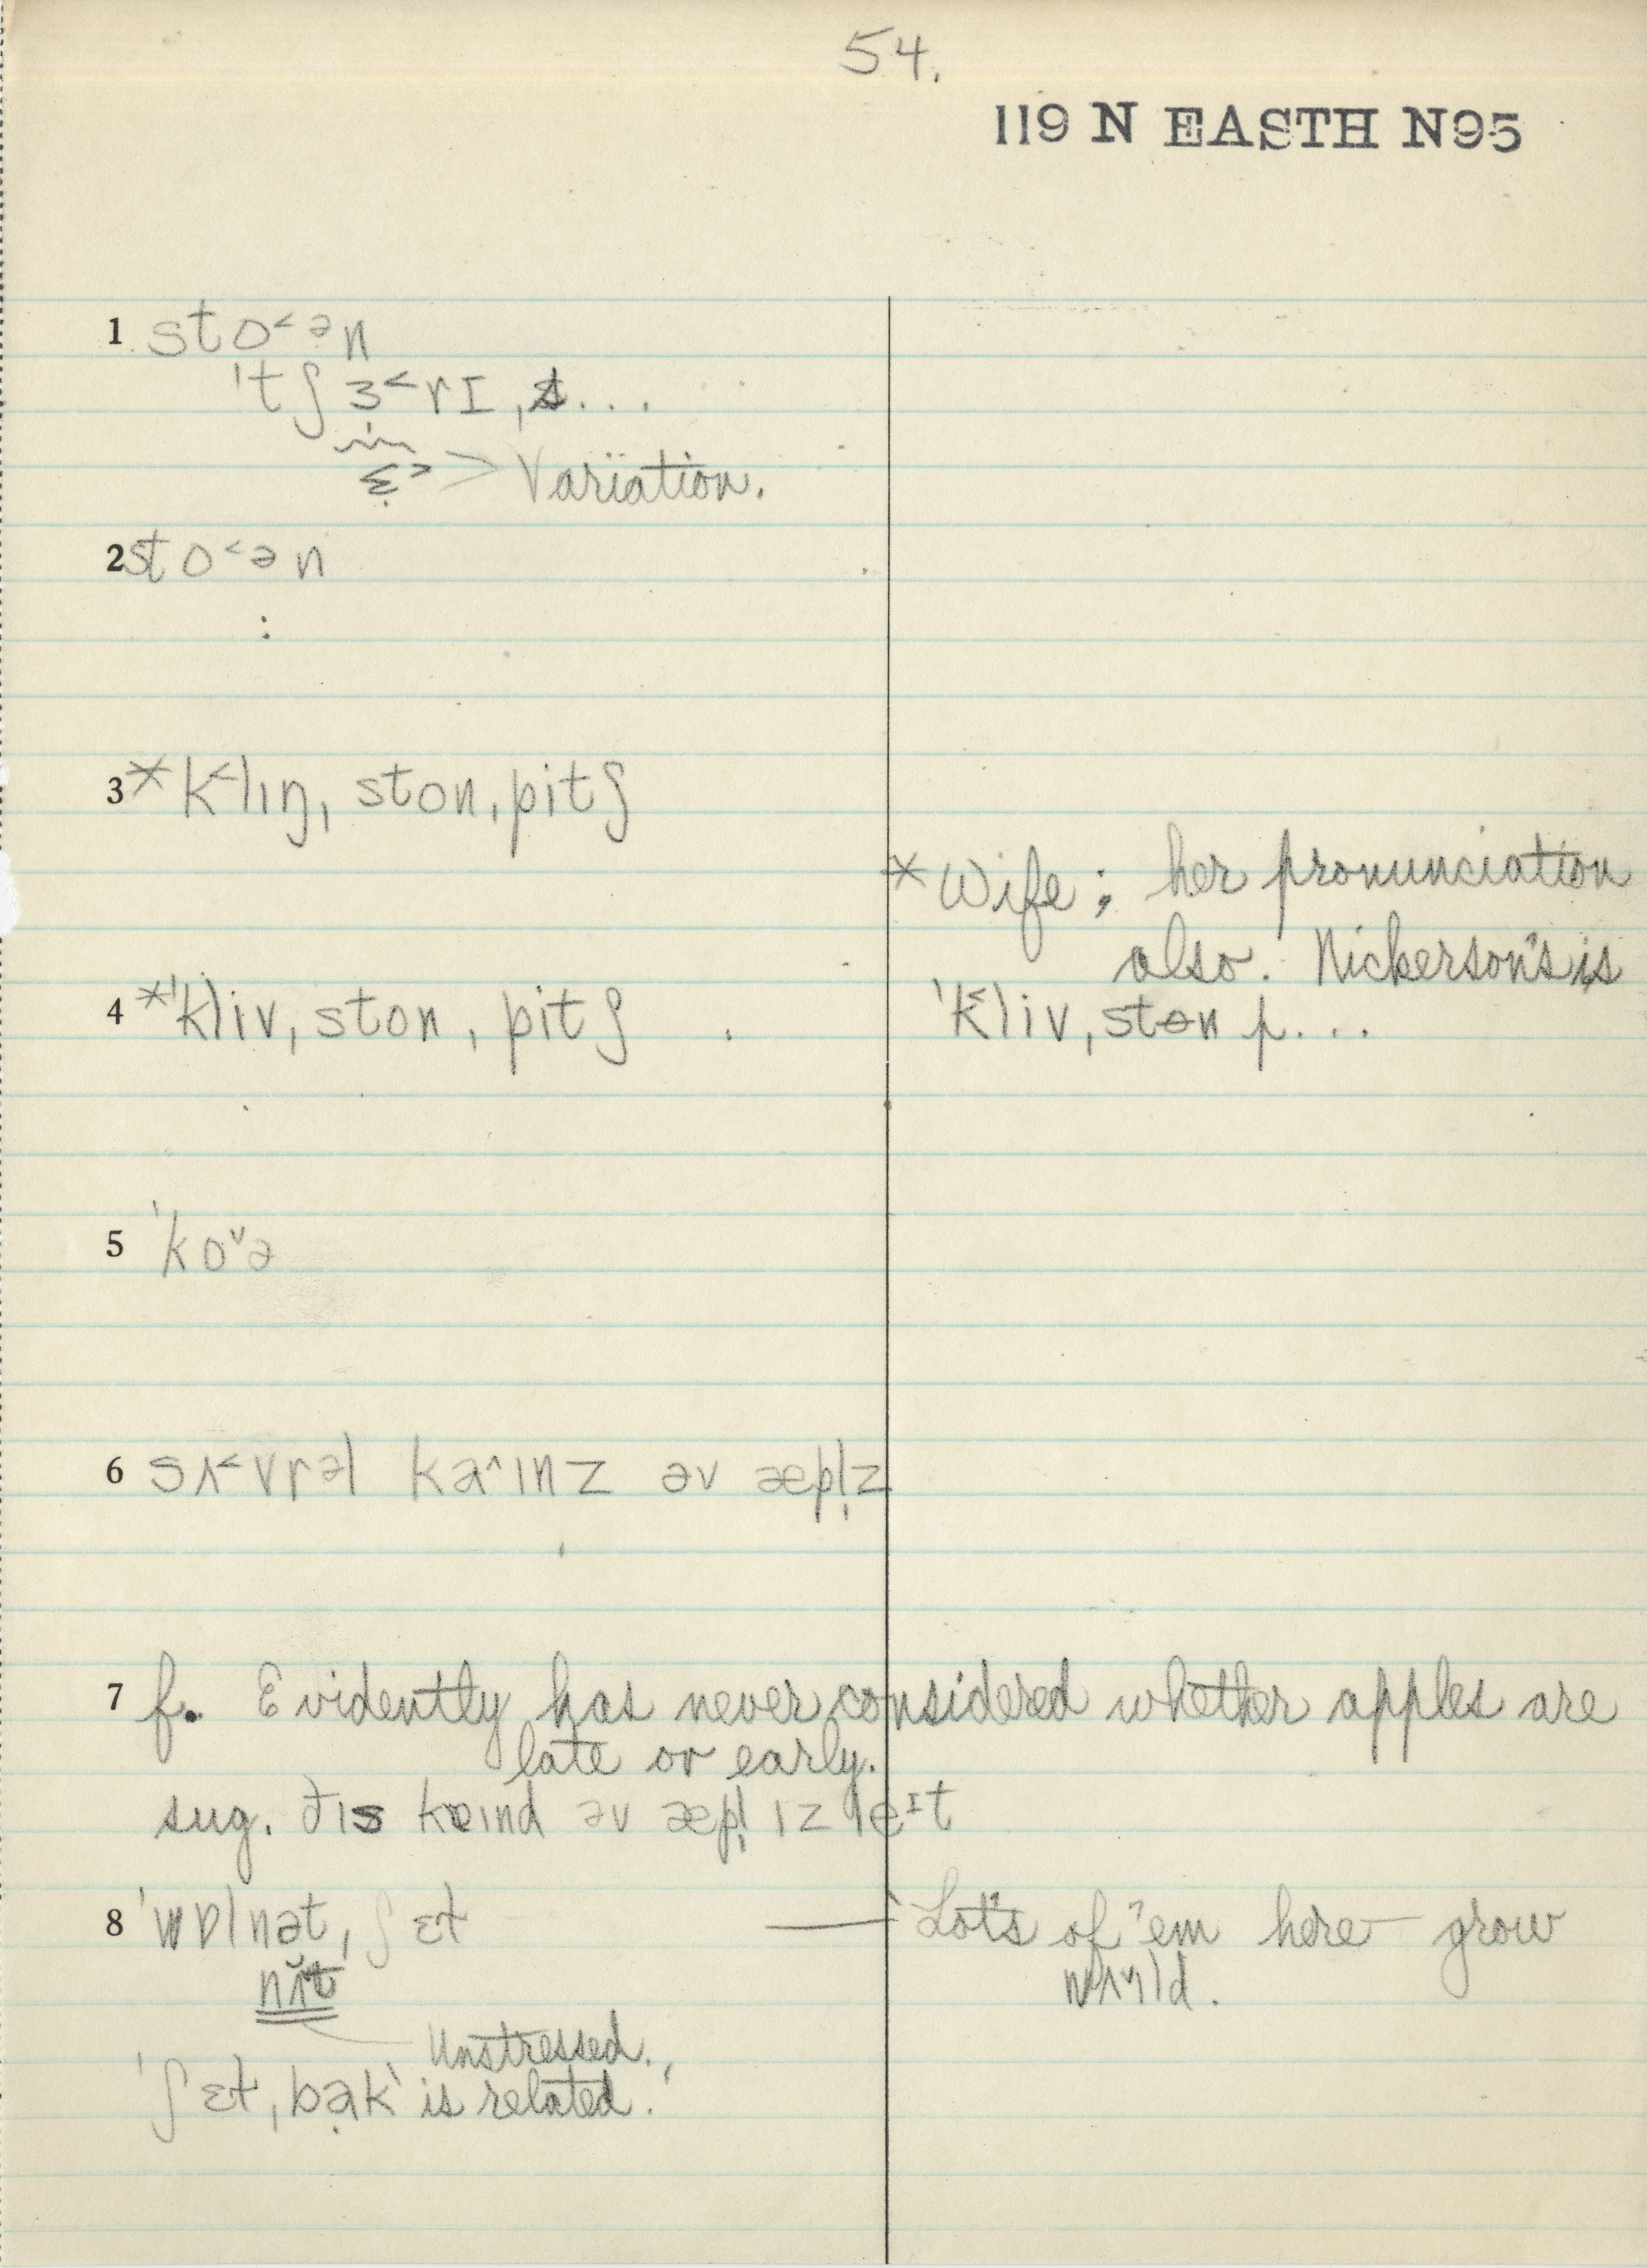 54.
119 N EASTH N95
1 sto˂ən
ˈtʃɜ˂rɪ, s...
ɛ̣˃ > Variation.
2 sto˂ən
:
3 * k˂lɪŋˌston, pitʃ
* Wife; her pronunciation
also. Nickerson's is
4 *ˈklivˌston, pitʃ
ˈk˂livˌstɵn p...
5 ˈkoˇə
6 sʌ˂vrəl kaˆɪnz əv æpl̩z
7 f. Evidently has never considered whether apples are
late or early.
sug. ðɪs kɐɪnd əv æpl̩ ɪz leᴵt
8 ˈwɒlnətˌʃɛɫ — 'Lots of 'em here — grow
nʌ̆t wʌˇɪld.
Unstressed.
'ʃɛɫˌbạk' is related.'